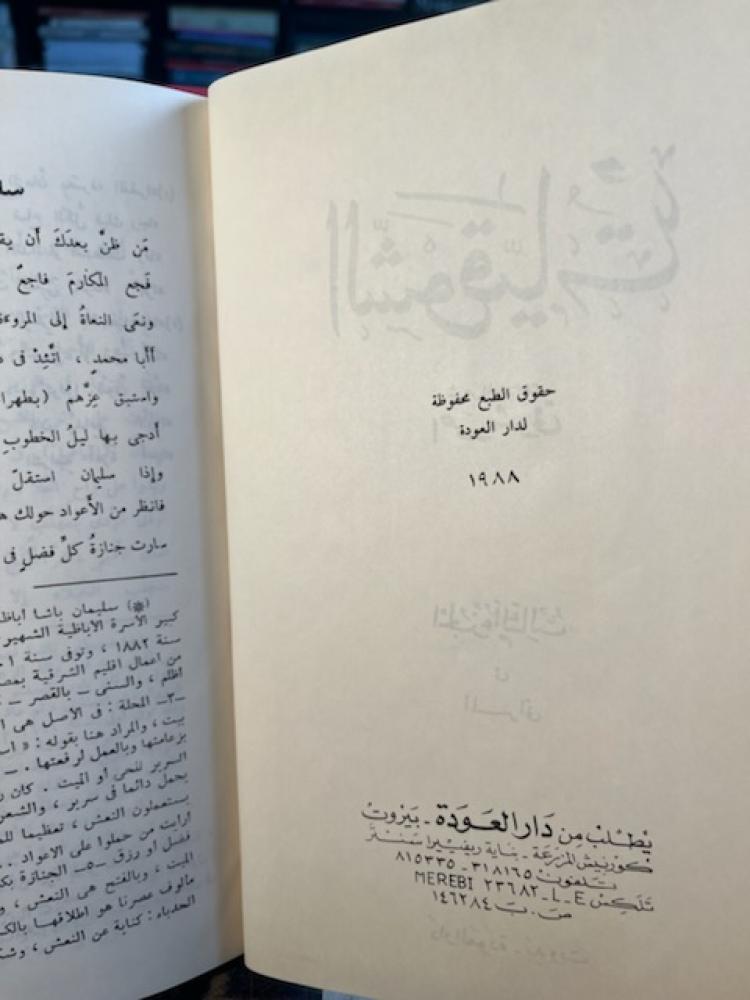 حقوق الطبع محفوظة
لدار العودة
١٩٨٨
يطلب من دار العودة - بيروت
كورنيش المزرعة - بناية ريفيرا سنتر
تلفون ٣١٨١٦٥ - ٨١٥٣٣٥
تلكس MEREBI ٢٣٦٨٢ - L - E
ص.ب ١٤٦٢٨٤
من ظنَّ بعدَكَ أن يق
فجع المكارمَ فاجعٌ
ونعَى النعاةُ إلى المروءة
أأبا محمدٍ ، اتَّئِدْ فى
واستبق عِزَّهمُ (بطهرا
أدجى بها ليلُ الخطوبِ
وإذا سليمان استقلّ
فانظر من الأَعواد حولك ه
سارت جنازةُ كلِّ فضلٍ فى
(*) سليمان باشا أباظ
كبير الأسرة الأباظية الشهير
سنة ١٨٨٢ ، وتوفى سنة
من أعمال اقليم الشرقية بمصر
أظلم ، والسنى - بالقصر -
-٣- المحلة : فى الأصل هى
بيت ، والمراد هنا بقوله : « اس
بزعامتها وبالعمل لرفعتها . -
السرير للنحى أو الميت . كان
يحمل دائما فى سرير ، والشعر
يستعملون النعش ، تعظيما للم
أرايت من حملوا على الاعواد . .
فضل أو رزق -٥- الجنازة بك
الميت ، وبالفتح هى النعش ، و
مألوف عصرنا هو اطلاقها بالك
الحدباء : كناية عن النعش ، وشب